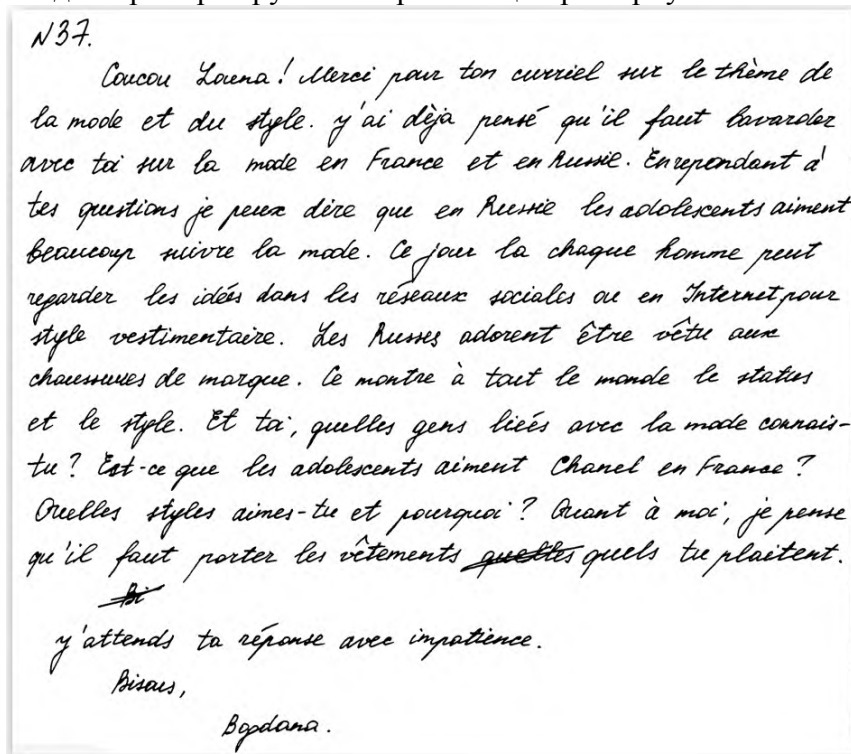 N37.
Coucou Louna! Merci pour ton curriel sur le thème de
la mode et du style. y'ai dèja pensé qu'il faut bavarder
avec toi sur la mode en France et en Russie. En repondant à
tes questions je peux dire que en Russie les adolescents aiment
beaucoup suivre la mode. Ce jour la chaque homme peut
regarder les idées dans les réseaux sociales ou en Internet pour
style vestimentaire. Les Russes adorent être vêtu aux
chaussures de marque. Ce montre à tout le monde le status
et le style. Et toi, quelles gens lieés avec la mode connais-
tu? Est-ce que les adolescents aiment Chanel en France?
Quelles styles aimes-tu et pourquoi? Quant à moi, je pense
qu'il faut porter les vêtements quelles quels tu plaitent.
Bi
y'attends ta réponse avec impatience.
Bisous,
Bogdana.